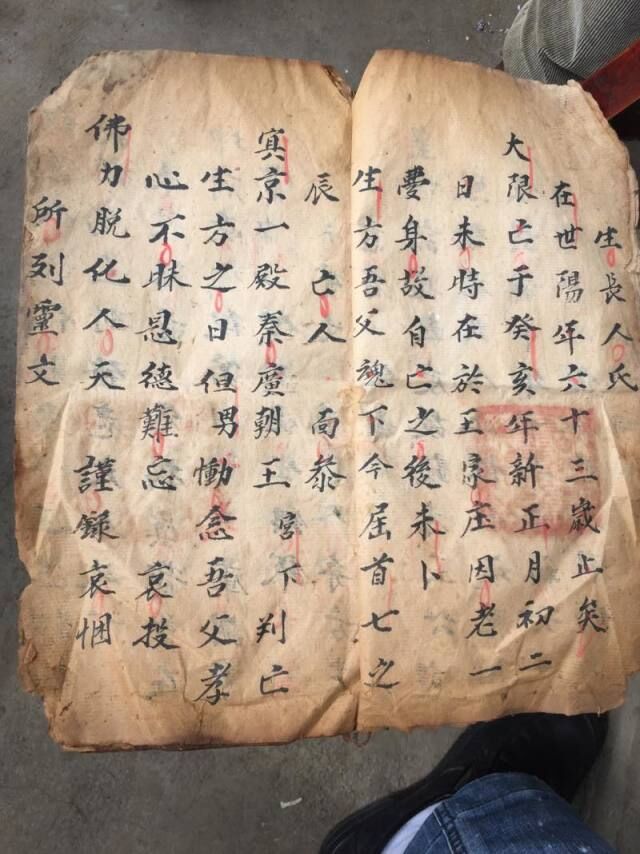 生長人氏
在世陽年六十三歲止矣
大限亡于癸亥年新正月初二
日未時在於王家庄因老一
夢身故自亡之後未卜
生方吾父魂下今屆首七之
辰 亡人 面叅
冥京一殿秦廣朝王宮下判亡
生方之日但男慟念吾父孝
心不昧恩德難忘 哀投
佛力脫化人天 謹錄哀悃
所列靈文